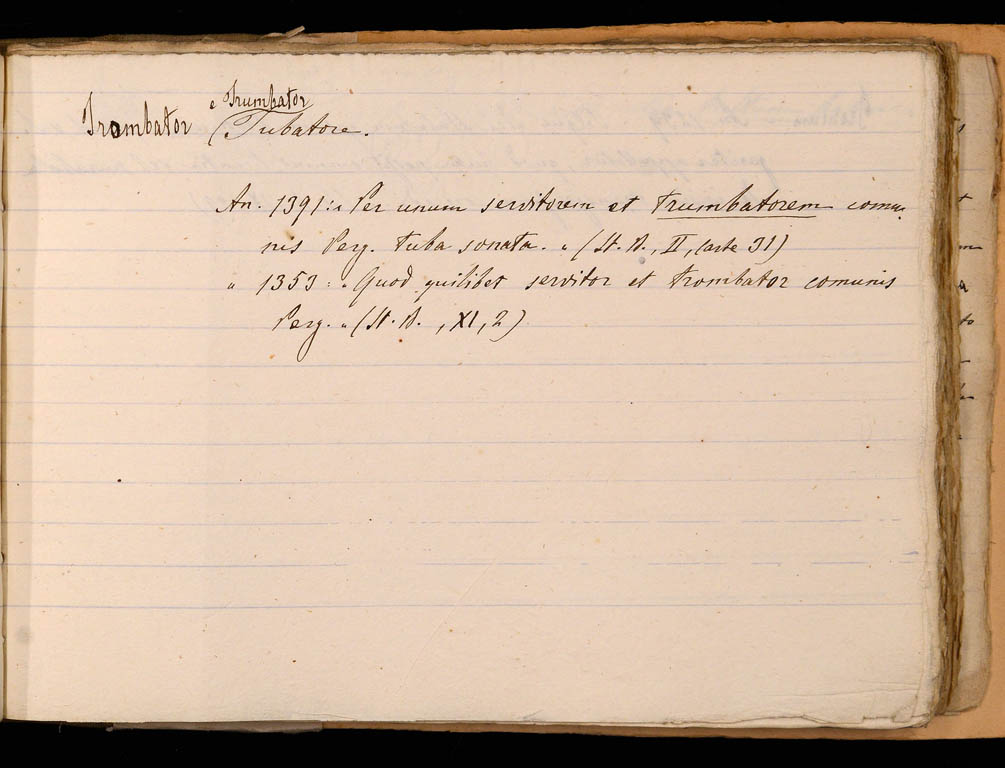 Trombator e Trumbator
(Tubatore.
An. 1391: « Per unum servitorem et trumbatorem comu-
nis Perg. tuba sonata. » (St. B., II, Carte 31)
" 1353: « Quod quilibet servitor et trombator comunis
Perg. » (St. B. , XI, 2)